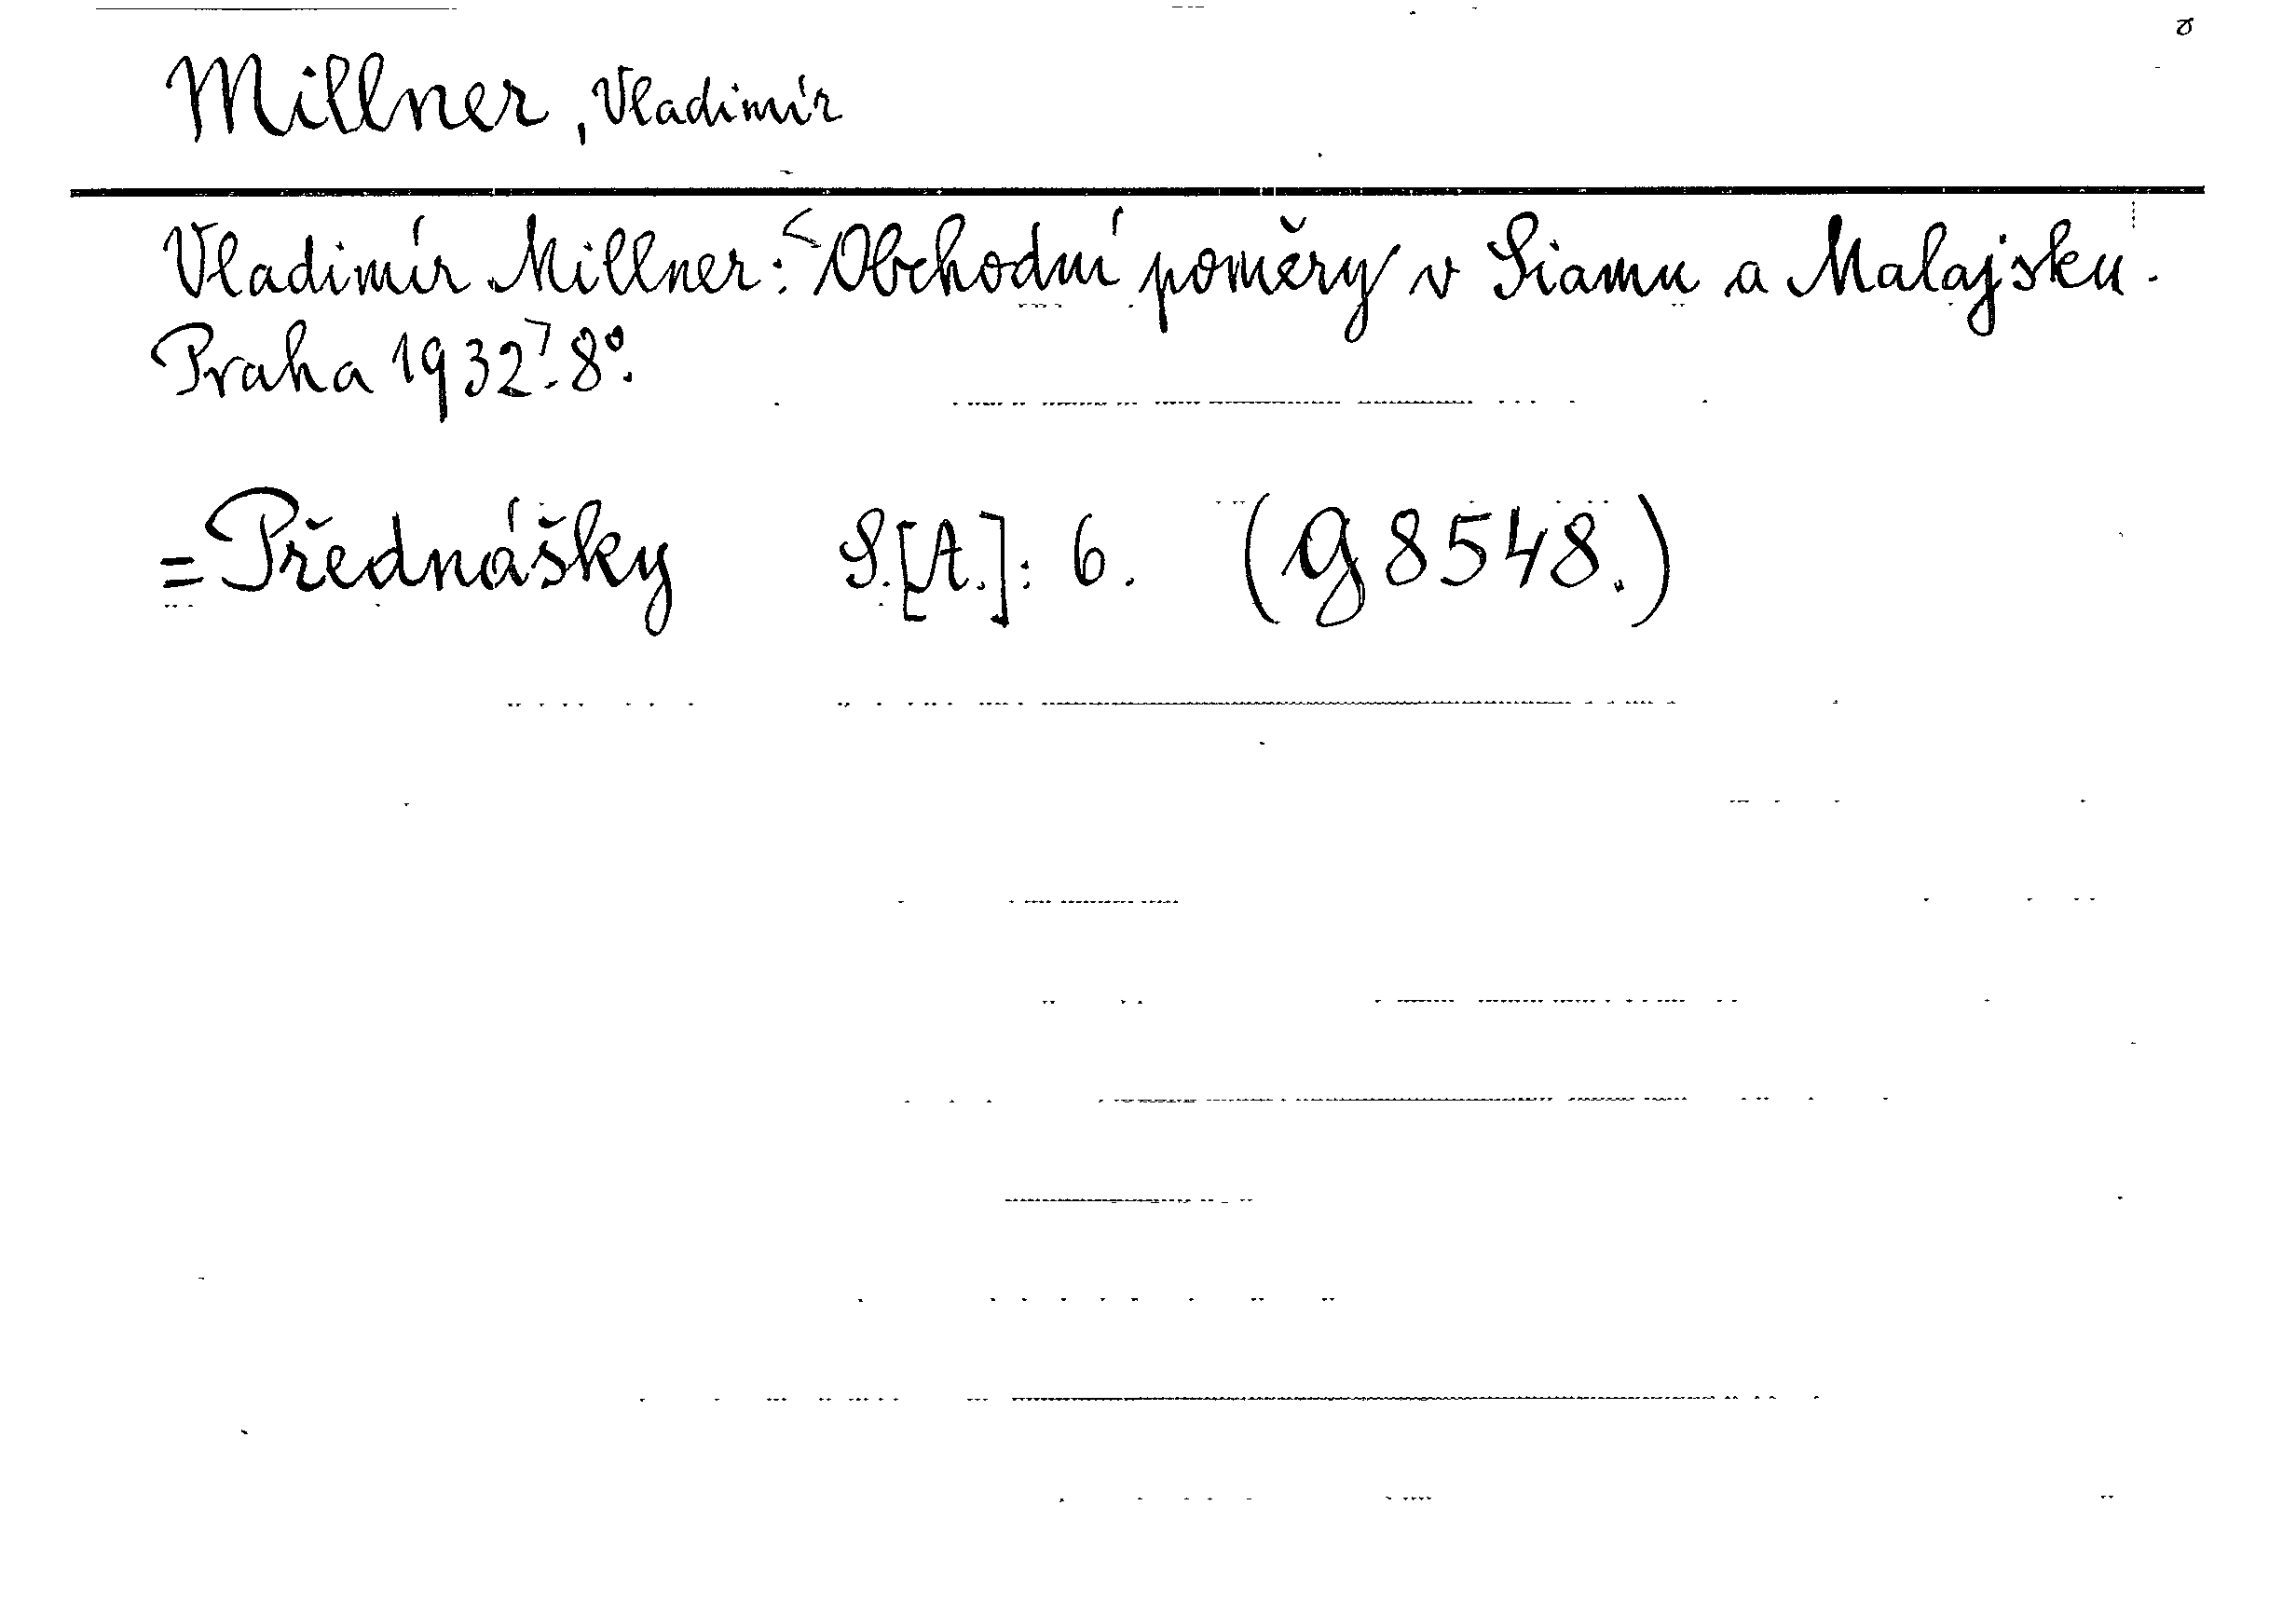 Millner, Vladimír
Vladimír Millner: Obchodní poměry v Siamu a Malajsku.
Praha 1932. 8°.
= Přednášky S.[A.]: 6. (G 8548.)